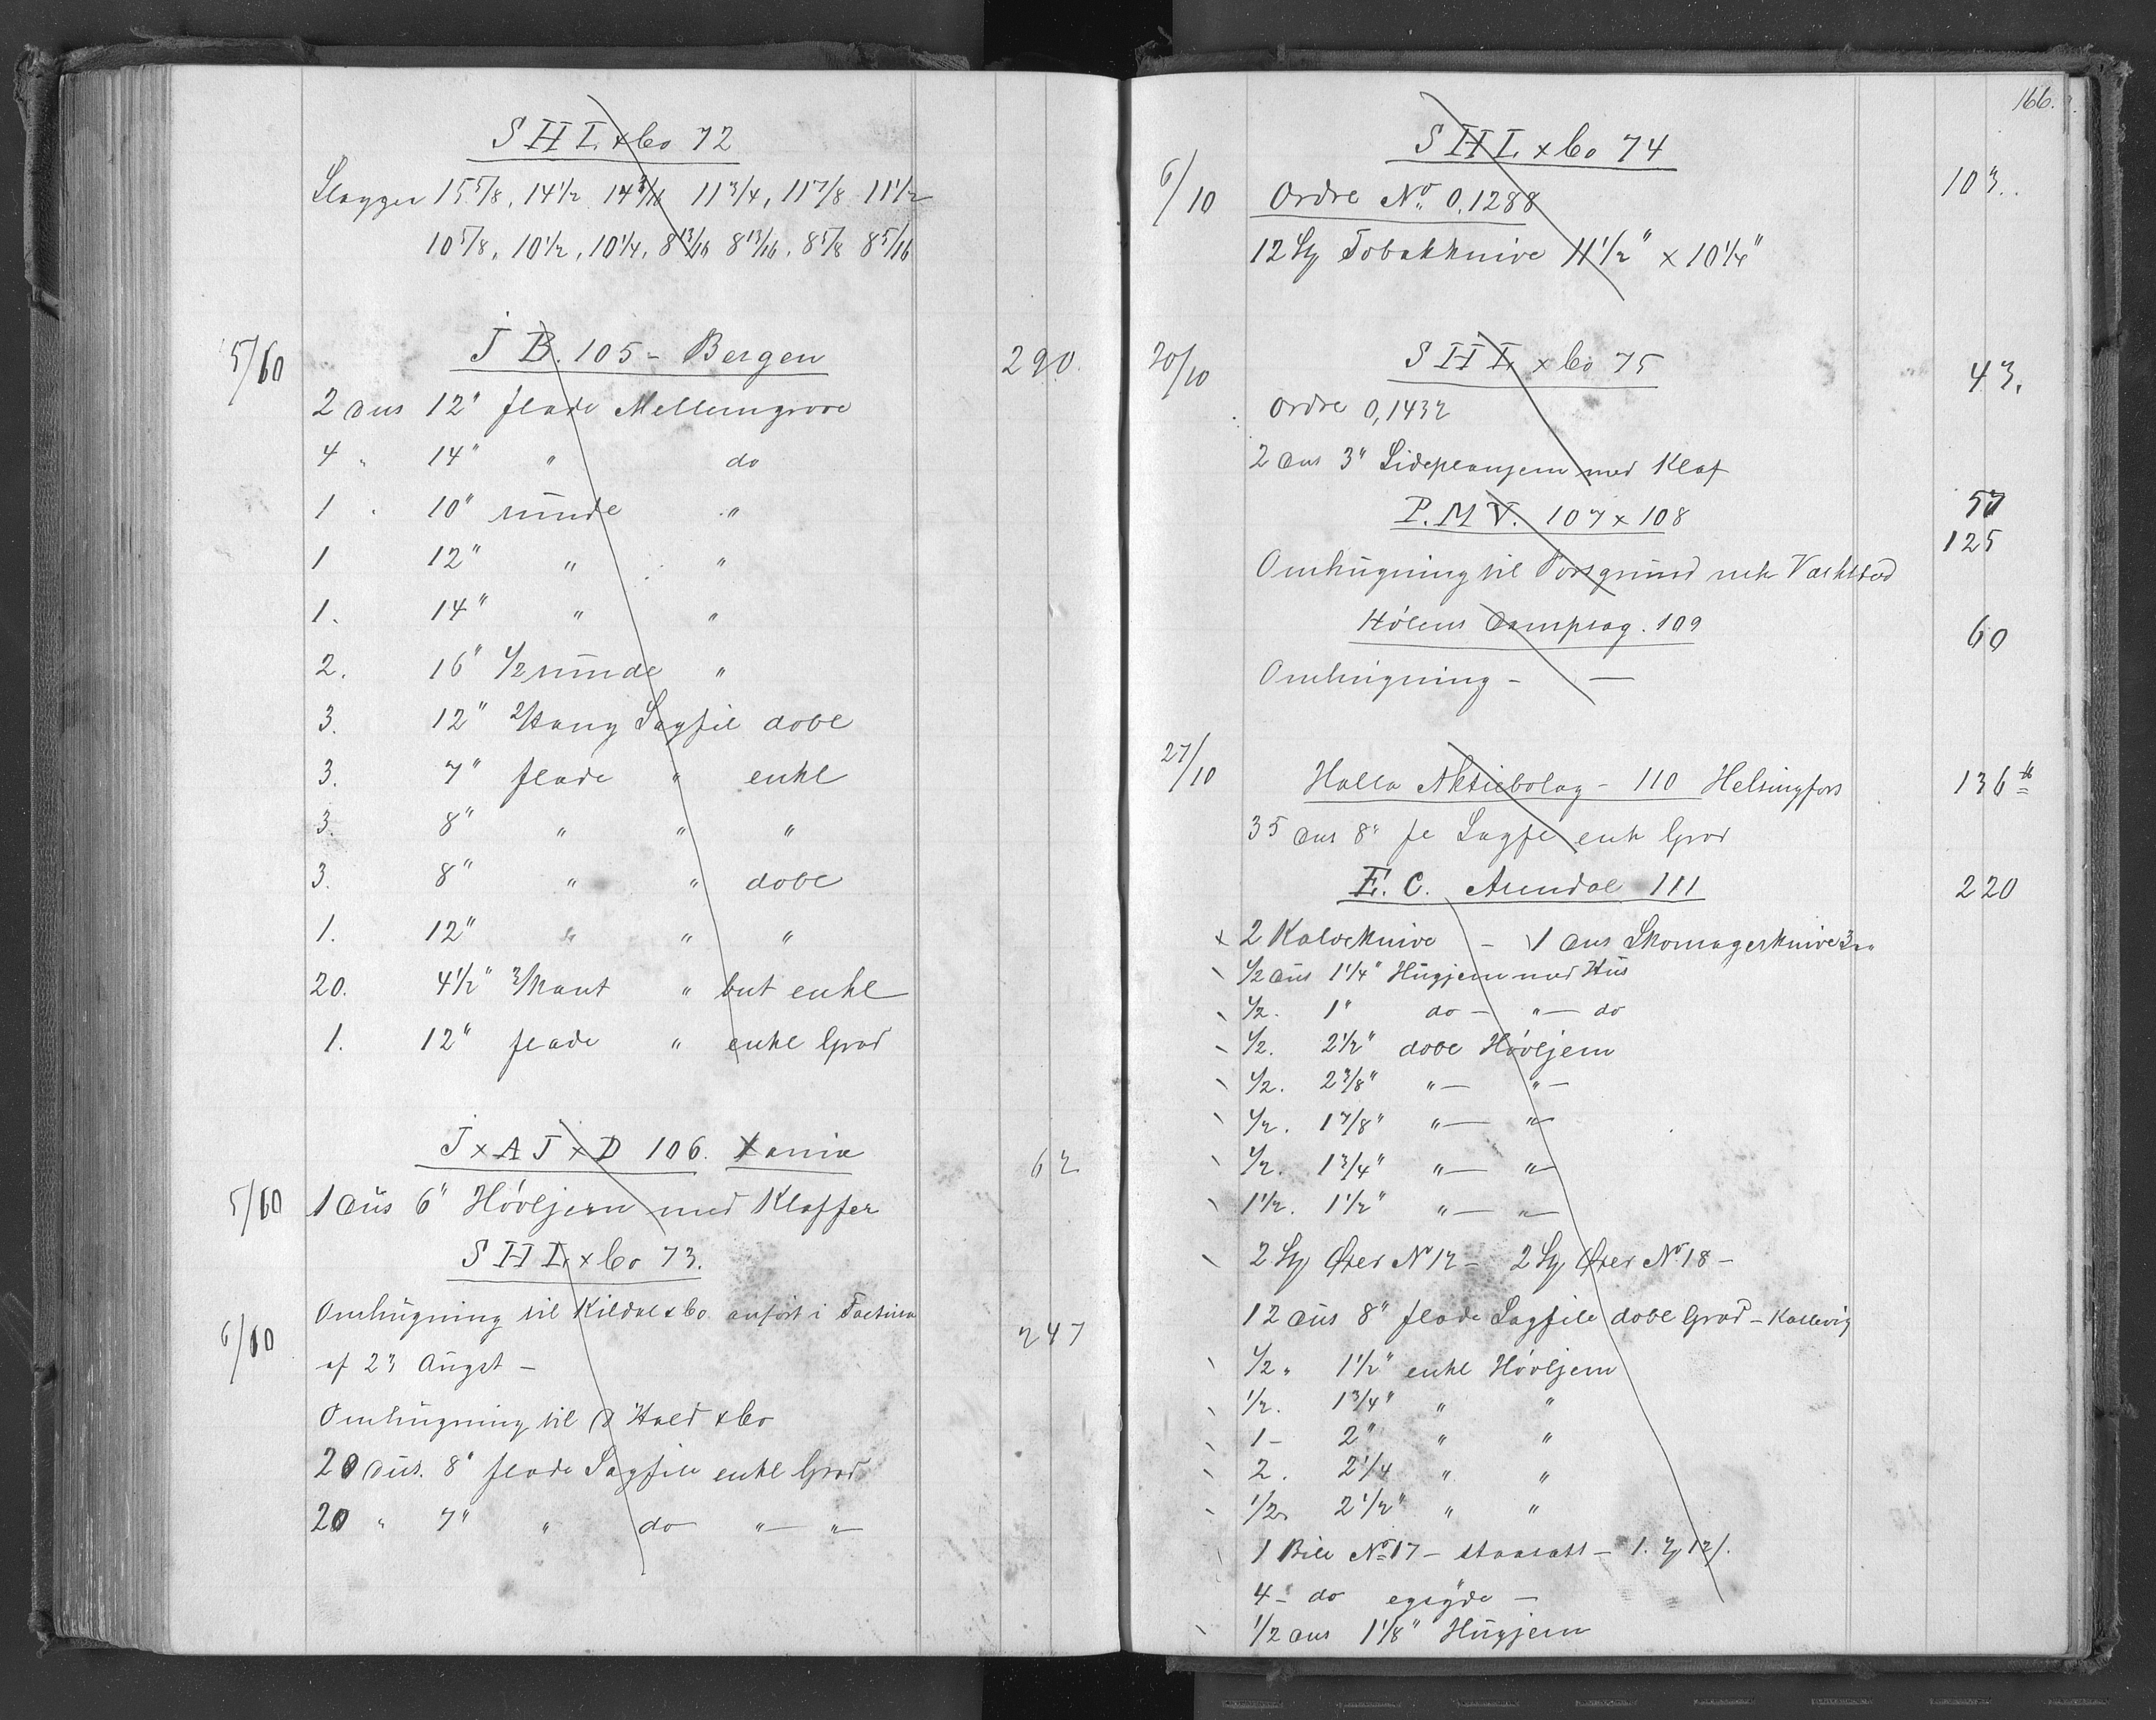 S H L x Co 72
Slagger 15 5/8, 14 1/2 14 3/16 11 3/4, 11 7/8 11 1/2
10 5/8, 10 1/2, 10 1/4, 8 13/16 8 13/16, 8 5/8 8 5/16
5/10 J B. 105 - Bergen 290.
2 dus 12" flade Mellemgrove
4 " 14" " do
1 " 10" runde "
1 12" " "
1. 14" " "
2. 16" 1/2 runde "
3. 12" 2/Kang Sagfil dobl
3. 7" flade " enkl
3. 8" " " "
3. 8" " " dobl
1. 12" " " "
20. 4 1/2" 3/Kant " but enkl
1. 12" flade " enkl Grad
J x A J x D 106. Xania 62
5/10 1 dus 6" Hövljern med Klaffer
S H L x Co 73.
Omhugning til Kildal & Co. anført i Factura
6/10 af 23 Augst - 247
Omhugning til Hald & Co
20 dus. 8" flade Sagfile enkl Grad
20 " 7" " do " — " —
166.
S H L x Co 74
6/10 Ordre No. 0.1288 103.
12 St Tobakknive 11 1/2" x 10 1/4"
20/10 S H L x Co 75 43.
Ordre 0,1432
2 dus 3" Sidepladnjern med Klaf
P. M V. 107 x 108 57
125
Omhugning til Porsgrund mek Værksted
Hølens Dampsag. 109 60
Omhugning - —
27/10 Halla Aktiebolag - 110 Helsingfors 136
35 dus 8" fl Sagfl enk Grad
E. C. Arendal 111 220
x 2 Kalveknive - 1 dus Skomagerknive 3"
1/2 dus 1 1/4" Hugjern med Hus
1/2. 1" do - " — do
1/2. 2 1/2" dobl Hövljern
1/2. 2 3/8" " — " —
1/2. 1 7/8" " — "
1/2. 1 3/4" " — "
1 1/2. 1 1/2" " — " —
2 St Øxer No 12 - 2 St Øxer No 18 -
12 dus 8" flade Sagfile dobl Grad - Kallevig
1/2 " 1 1/2" enkl Hövljern
1/2. 1 3/4" " "
1 - 2" " "
2. 2 1/4 " "
1/2. 2 1/2" " "
1 Bile No 17 -
4 - do egsyde -
1/2 dus 1 1/8" Hugjern